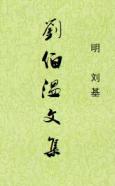 劉伯溫文集
明 刘基